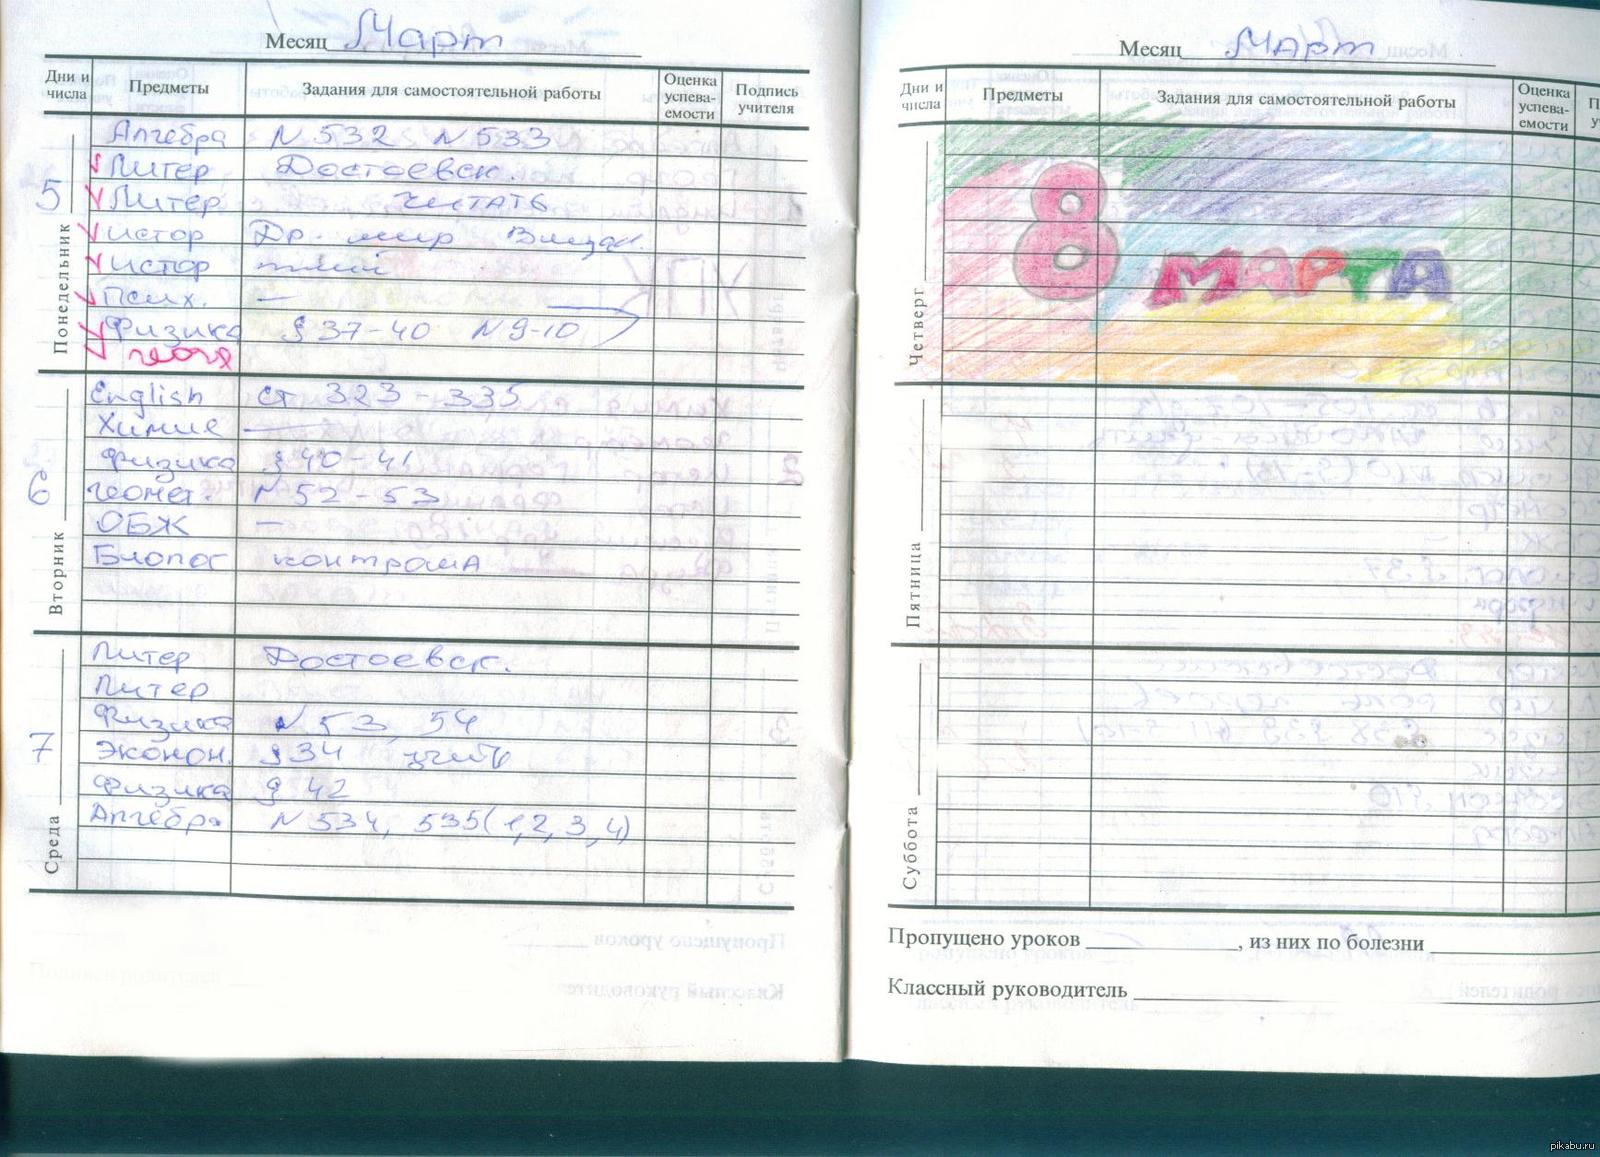 Месяц Март
Дни и числа Предметы Задания для самостоятельной работы Оценка успева- емости Подпись учителя
Понедельник
5
Алгебра N 532 N 533
Литер Достоевск.
Литер читать
Истор Др. мир
Истор
Псих. —
Физика § 37-40 N 9-10
геогр
Вторник
6
English ст 323-335
Химия
Физика § 40-41
геомет. N 52-53
ОБЖ —
Биолог контроша
Среда
7
Литер Достоевск.
Литер
Физика N 53, 54
Эконом. § 34 учить
Физика § 42
Алгебра N 534, 535(1,2,3,4)
Месяц Март
Дни и числа Предметы Задания для самостоятельной работы Оценка успева- емости
Четверг
8 МАРТА
Пятница
Суббота
Пропущено уроков , из них по болезни
Классный руководитель
pikabu.ru